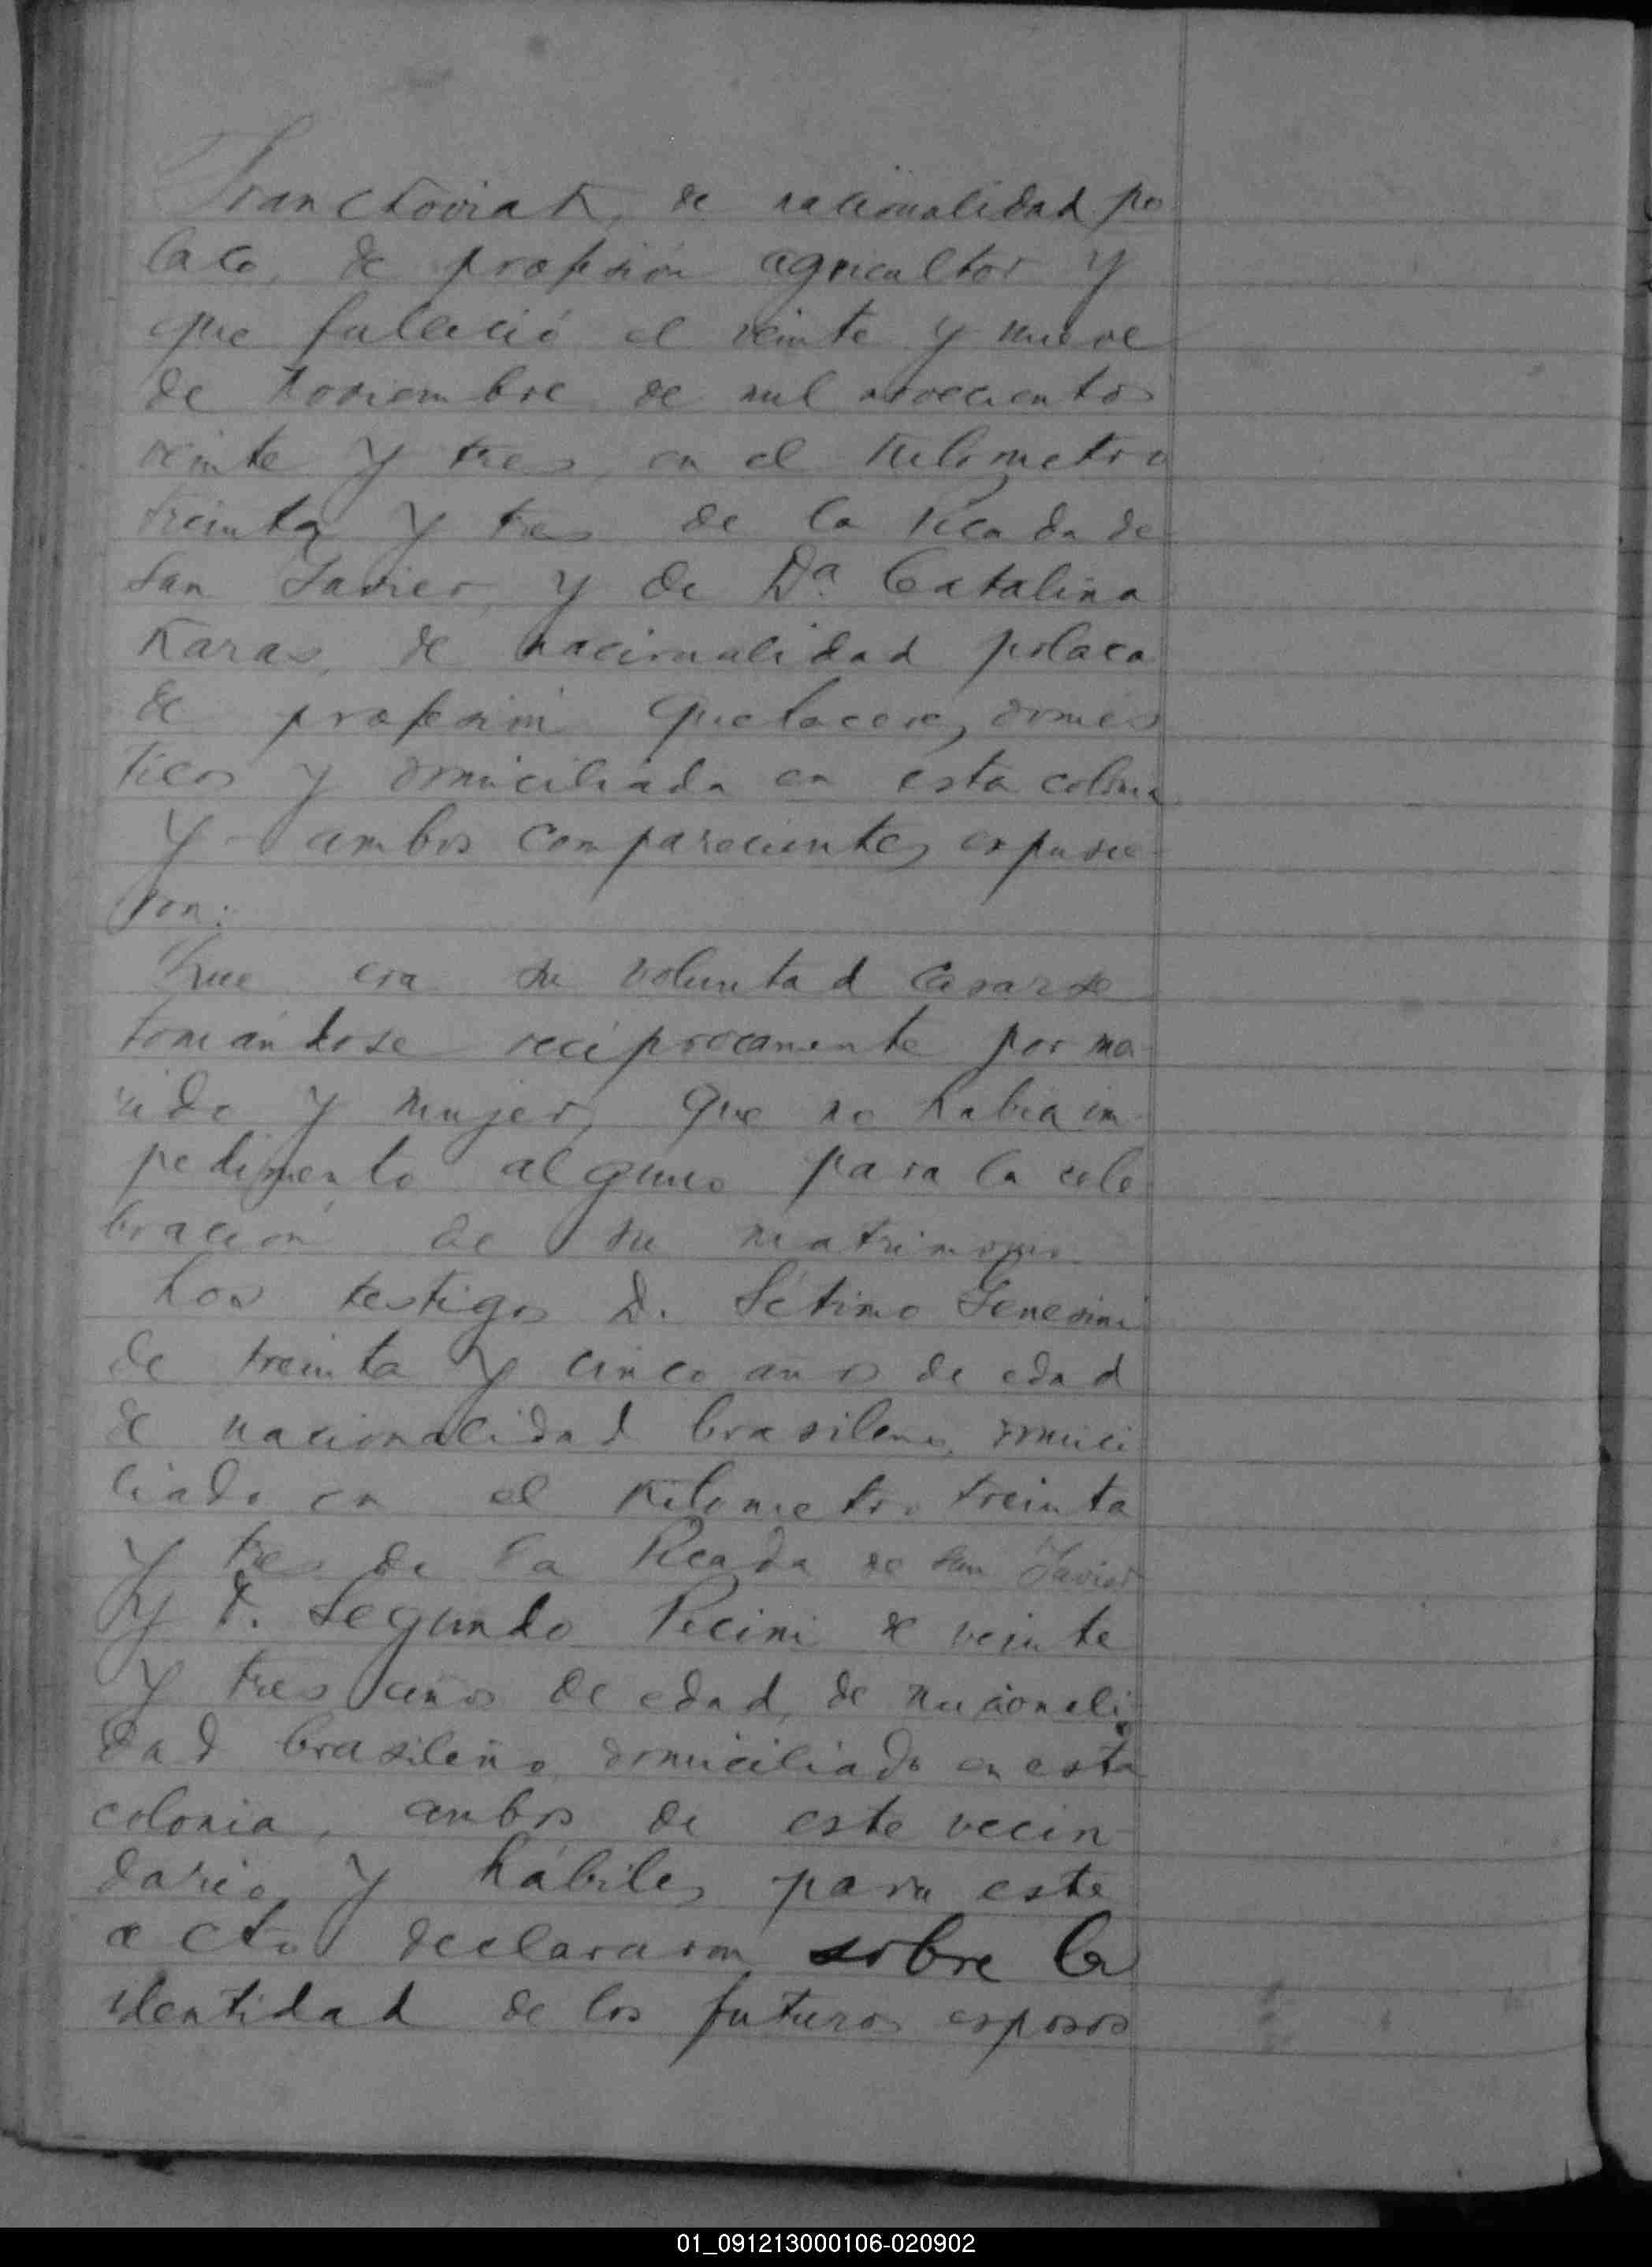 de nacionalidad po
laco, de profesión agricultor y
que falleció el veinte y nueve
de Noviembre de mil novecientos
veinte y tres, en el Kilometro
treinta y tres de la Picada de
San Javier, y de Da. Catalina
Karas, de nacionalidad polaca
de profesión quehaceres domés
ticos y domiciliada en esta colonia
Y ambos comparecientes expusie-
ron:
Que era su voluntad casarse
tomándose recíprocamente por ma-
rido y mujer, que no había im-
pedimento alguno para la cele
bración de su matrimonio
Los testigos D. Sétimo Genesini
de treinta y cinco años de edad
de nacionalidad brasileno, domici
liado en el Kilometro treinta
y tres de la Picada de San Javier
y D. Segundo Picini de veinte
y tres años de edad, de nacionali-
dad brasileño domiciliado en esta
colonia, ambos de este vecin-
dario y hábiles para este
acto declararon sobre la
identidad de los futuros esposos
01_091213000106-020902